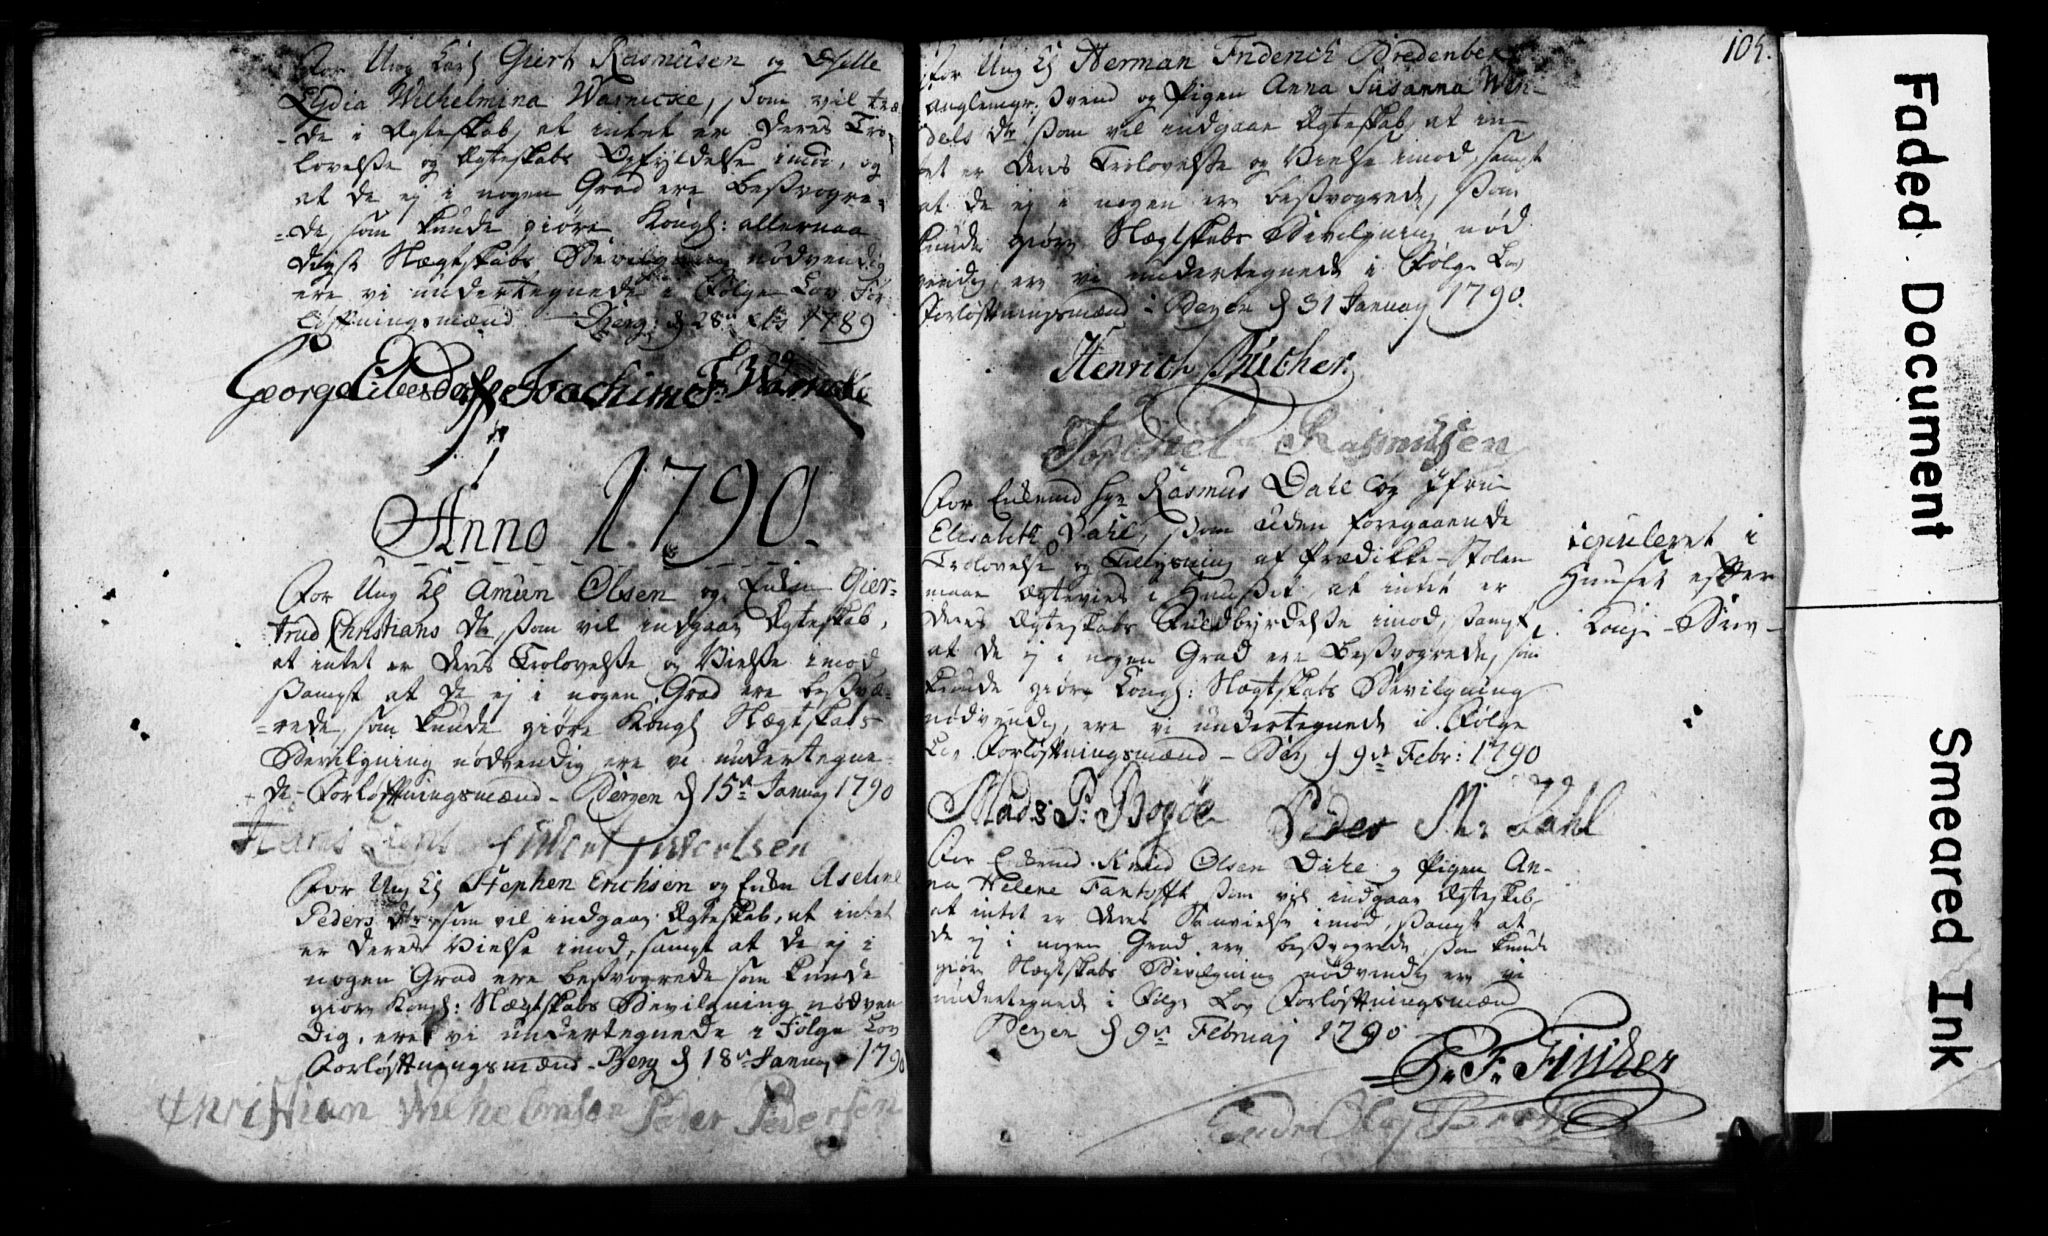 For Ung Karl Giert Rasmusen og
Lydia Wilhelmina Warnicke, som vil træ
-de i Ægteskab, at intet er deres Tro-
lovelse og Ægteskabs Opfyldelse imod, og
at de ej i nogen Grad ere besvogre-
-de, som kunde giøre Kongl: allernaa
digst Slægtskabs Bevilgning nødvendig
ere vi undertegnede i Følge Lov For
løftningsmænd Berg: d 28de 1789
George Joachim
Anno 1790.
For Ung K Amun Olsen og Enken Gier-
trud Christians Dtr, som vil indgaae Ægteskab,
at intet er deres Trolovelse og Vielse imod
samt at de ej i nogen Grad ere besvog-
-rede, som kunde giøre Kongl Slægtskabs
Bevilgning nødvendig ere vi undertegne-
de Forløftningsmænd - Bergen d 15de Januarj 1790
Hans
For Ung K Stephen Erichsen og Enken Aseline
Peders Dtr som vil indgaae Ægteskab, at intet
er deres Vielse imod, samt at de ej i
nogen Grad ere besvogrede som kunde
giøre Kongl: Slægtskabs Bevilgning nødven
dig, ere vi undertegnede i Følge Lov
Forløftningsmænd - Berg d 18de Januarj 1790
Christian Wilhelmsen Peder Pedersen
105.
For Ung K Herman Friderich Bredenbek
Svend og Pigen Anna Susanna Wen-
dels Dtr som vil indgaae Ægteskab at in-
tet er deres Trolovelse og Vielse imod, samt
at de ej i nogen ere besvogrede, som
kunde giøre Slægtskabs Bevilgning nød
vendig, ere vi undertegnede i Følge Lov
Forløftningsmænd i Bergen d 31 Januarj 1790.
Henrich Bücher
Rasmusen
For Enkemand Hr Rasmus Dahl og Jfru
Elisabeth Dahl, som uden foregaaende
Trolovelse og Tillysning af Prædikke-Stolen
maae Ægtevies i Huuset at intet er
deres Ægteskabs Fuldbyrdelse imod, samt
at de ej i nogen Grad ere besvogrede, som
kunde giøre Kongl: Slægtskabs Bevilgning
nødvendig, ere vi undertegnede i Følge
Lov Forløftningsmænd - Berg d 9de Febr: 1790
copuleret i
Huuset efter
Kongl - Bev -
Mads P: Bogøe Peder M: Dahl
For Enkemand Knud Olsen Dahl og Pigen An-
na Helene Fantofft som vil indgaae Ægteskab
at intet er deres Samvielse imod, samt at
de ej i nogen Grad ere besvogrede, som kunde
giøre Slægtskabs Bevilgning nødvendig ere vi
undertegnede i Følge Lov Forløftningsmænd
Bergen d 9de Februarj 1790
F. Fischer
Faded Document
Smeared Ink